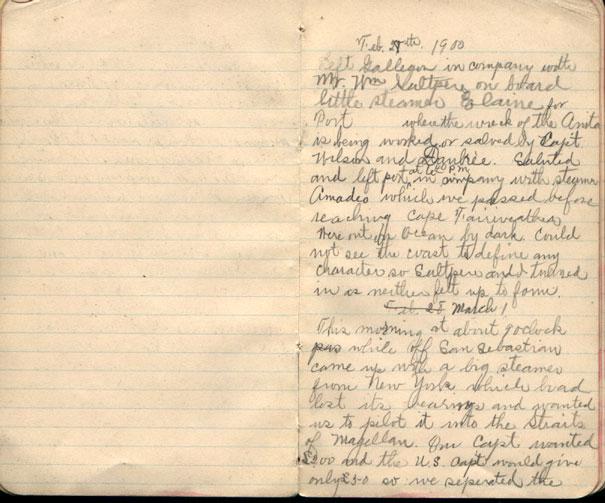 Feb. 27th, 1900
Left Gallegos in company with
Mr. Wm Saltpere on board
little steamer Elaine for
Port where the wreck of the Anita
is being worked or salved by Capt
Wilson and Daubree. Saluted
and left port at 6 P.M in company with steamer
Amadeo which we passed before
reaching Cape Fairweather
Were out in Ocean by dark. Could
not see the coast to define any
character so Saltpere and I turned
in as neither felt up to fome.
Feb. 28 March 1
This morning at about 9 oclock
pas while off San Sebastian
came up with a big steamer
from New York which had
lost its bearings and wanted
us to pilot it into the Straits
of Magellan. Our Capt wanted
£200 and the U.S. Capt would give
only £50 so we seperated the